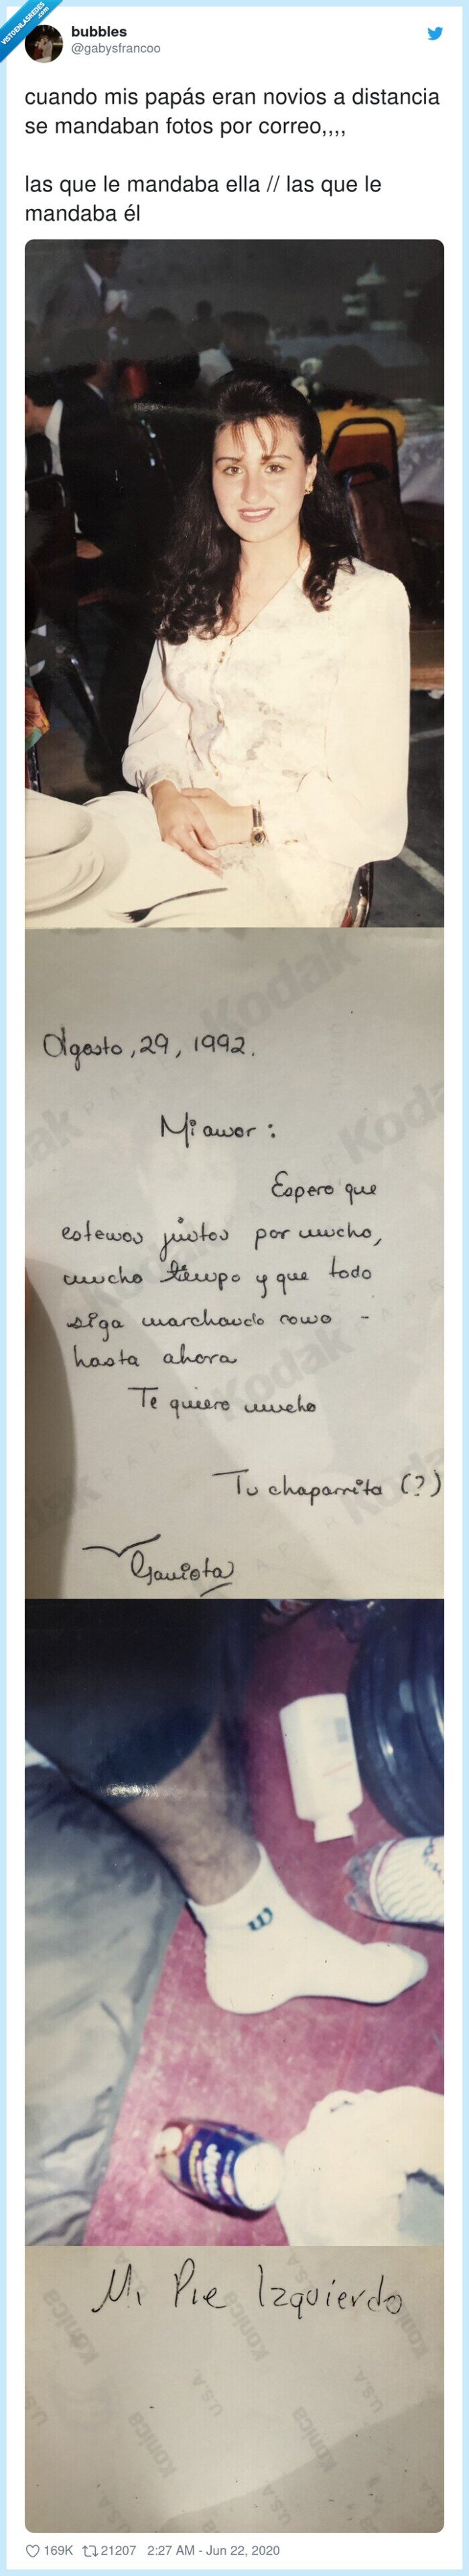 VISTOENLASREDES
.com
bubbles
@gabysfrancoo
cuando mis papás eran novios a distancia
se mandaban fotos por correo,,,,
las que le mandaba ella // las que le
mandaba él
Kodak
Agosto, 29, 1992.
Mi amor :
Espero que
estemos juntos por mucho,
mucho tiempo y que todo
siga marchando como -
hasta ahora
Te quiero mucho
Tu chaparrita (?)
Gaviota
Mi Pie Izquierdo
Konica
U.S.A.
169K 21207 2:27 AM - Jun 22, 2020